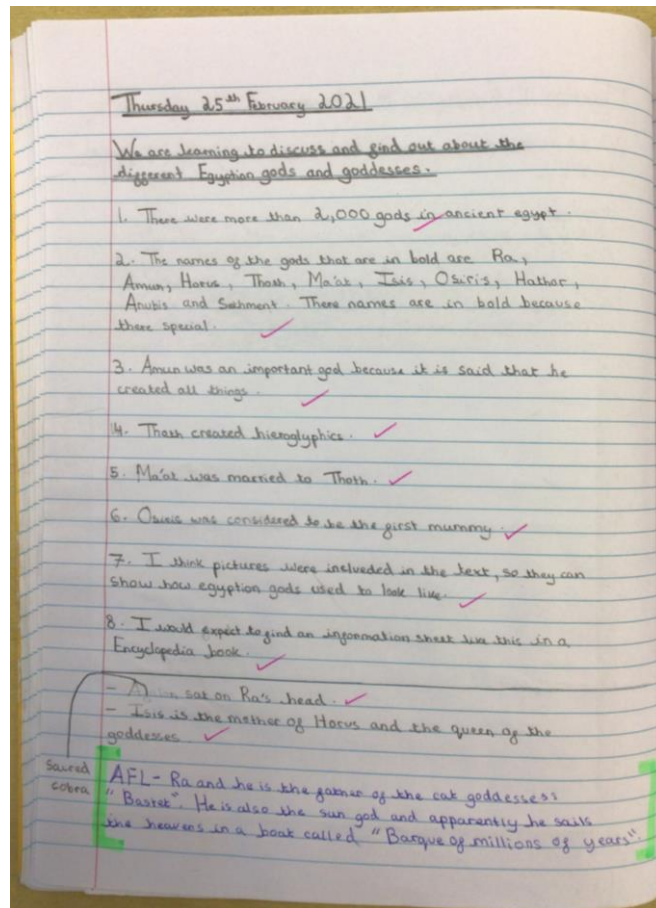 Thursday 25th February 2021
We are learning to discuss and find out about the
different Egyption gods and goddesses.
1. There were more than 2,000 gods in ancient egypt.
2. The names of the gods that are in bold are Ra,
Amun, Horus, Thoth, Ma'at, Isis, Osiris, Hathor,
Anubis and Sekhment. There names are in bold because
there special.
3. Amun was an important god because it is said that he
created all things.
4. Thoth created hieroglyphics.
5. Ma'at was married to Thoth.
6. Osiris was considered to be the first mummy.
7. I think pictures were inclueded in the text, so they can
show how egyption gods used to look like.
8. I would expect to find an information sheet like this in a
Encyclopedia book.
- sat on Ra's head.
- Isis is the mother of Horus and the queen of the
goddesses.
Sacred
cobra
AFL - Ra and he is the father of the cat goddessess
"Bastet". He is also the sun god and apparently he sails
the heavens in a boat called "Barque of millions of years".